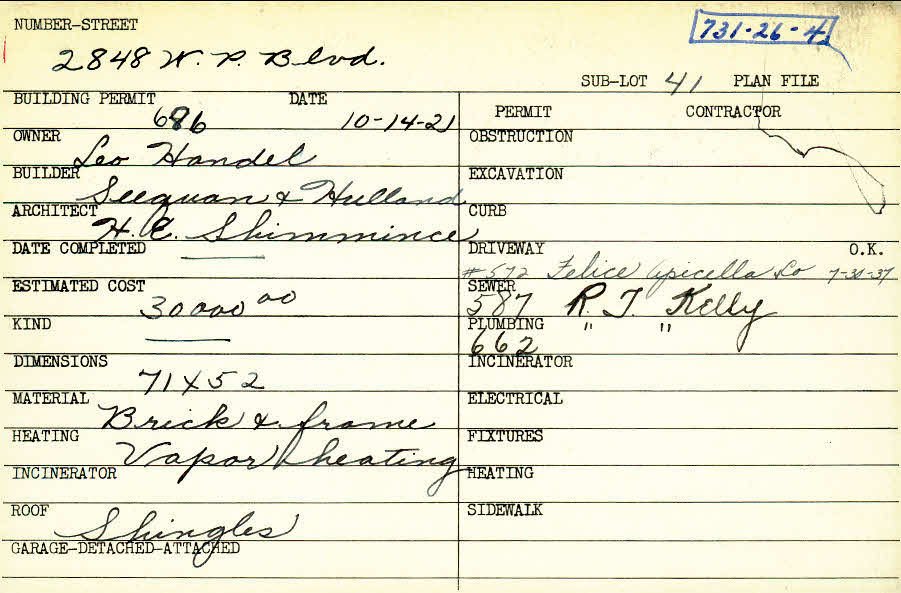 NUMBER-STREET
731-26-4
2848 W. P. Blvd.
SUB-LOT 41 PLAN FILE
BUILDING PERMIT 686 DATE 10-14-21
OWNER Leo Handel
BUILDER & Hulland
ARCHITECT H. E. Shimmince
DATE COMPLETED
ESTIMATED COST 30000 00
KIND
DIMENSIONS 71 x 52
MATERIAL Brick & frame
HEATING Vapor heating
INCINERATOR
ROOF Shingles
GARAGE-DETACHED-ATTACHED
PERMIT CONTRACTOR
OBSTRUCTION
EXCAVATION
CURB
DRIVEWAY O.K.
#572 Felice Apicella Co 7-30-37
SEWER 587 R. T. Kelly
PLUMBING 662 " "
INCINERATOR
ELECTRICAL
FIXTURES
HEATING
SIDEWALK